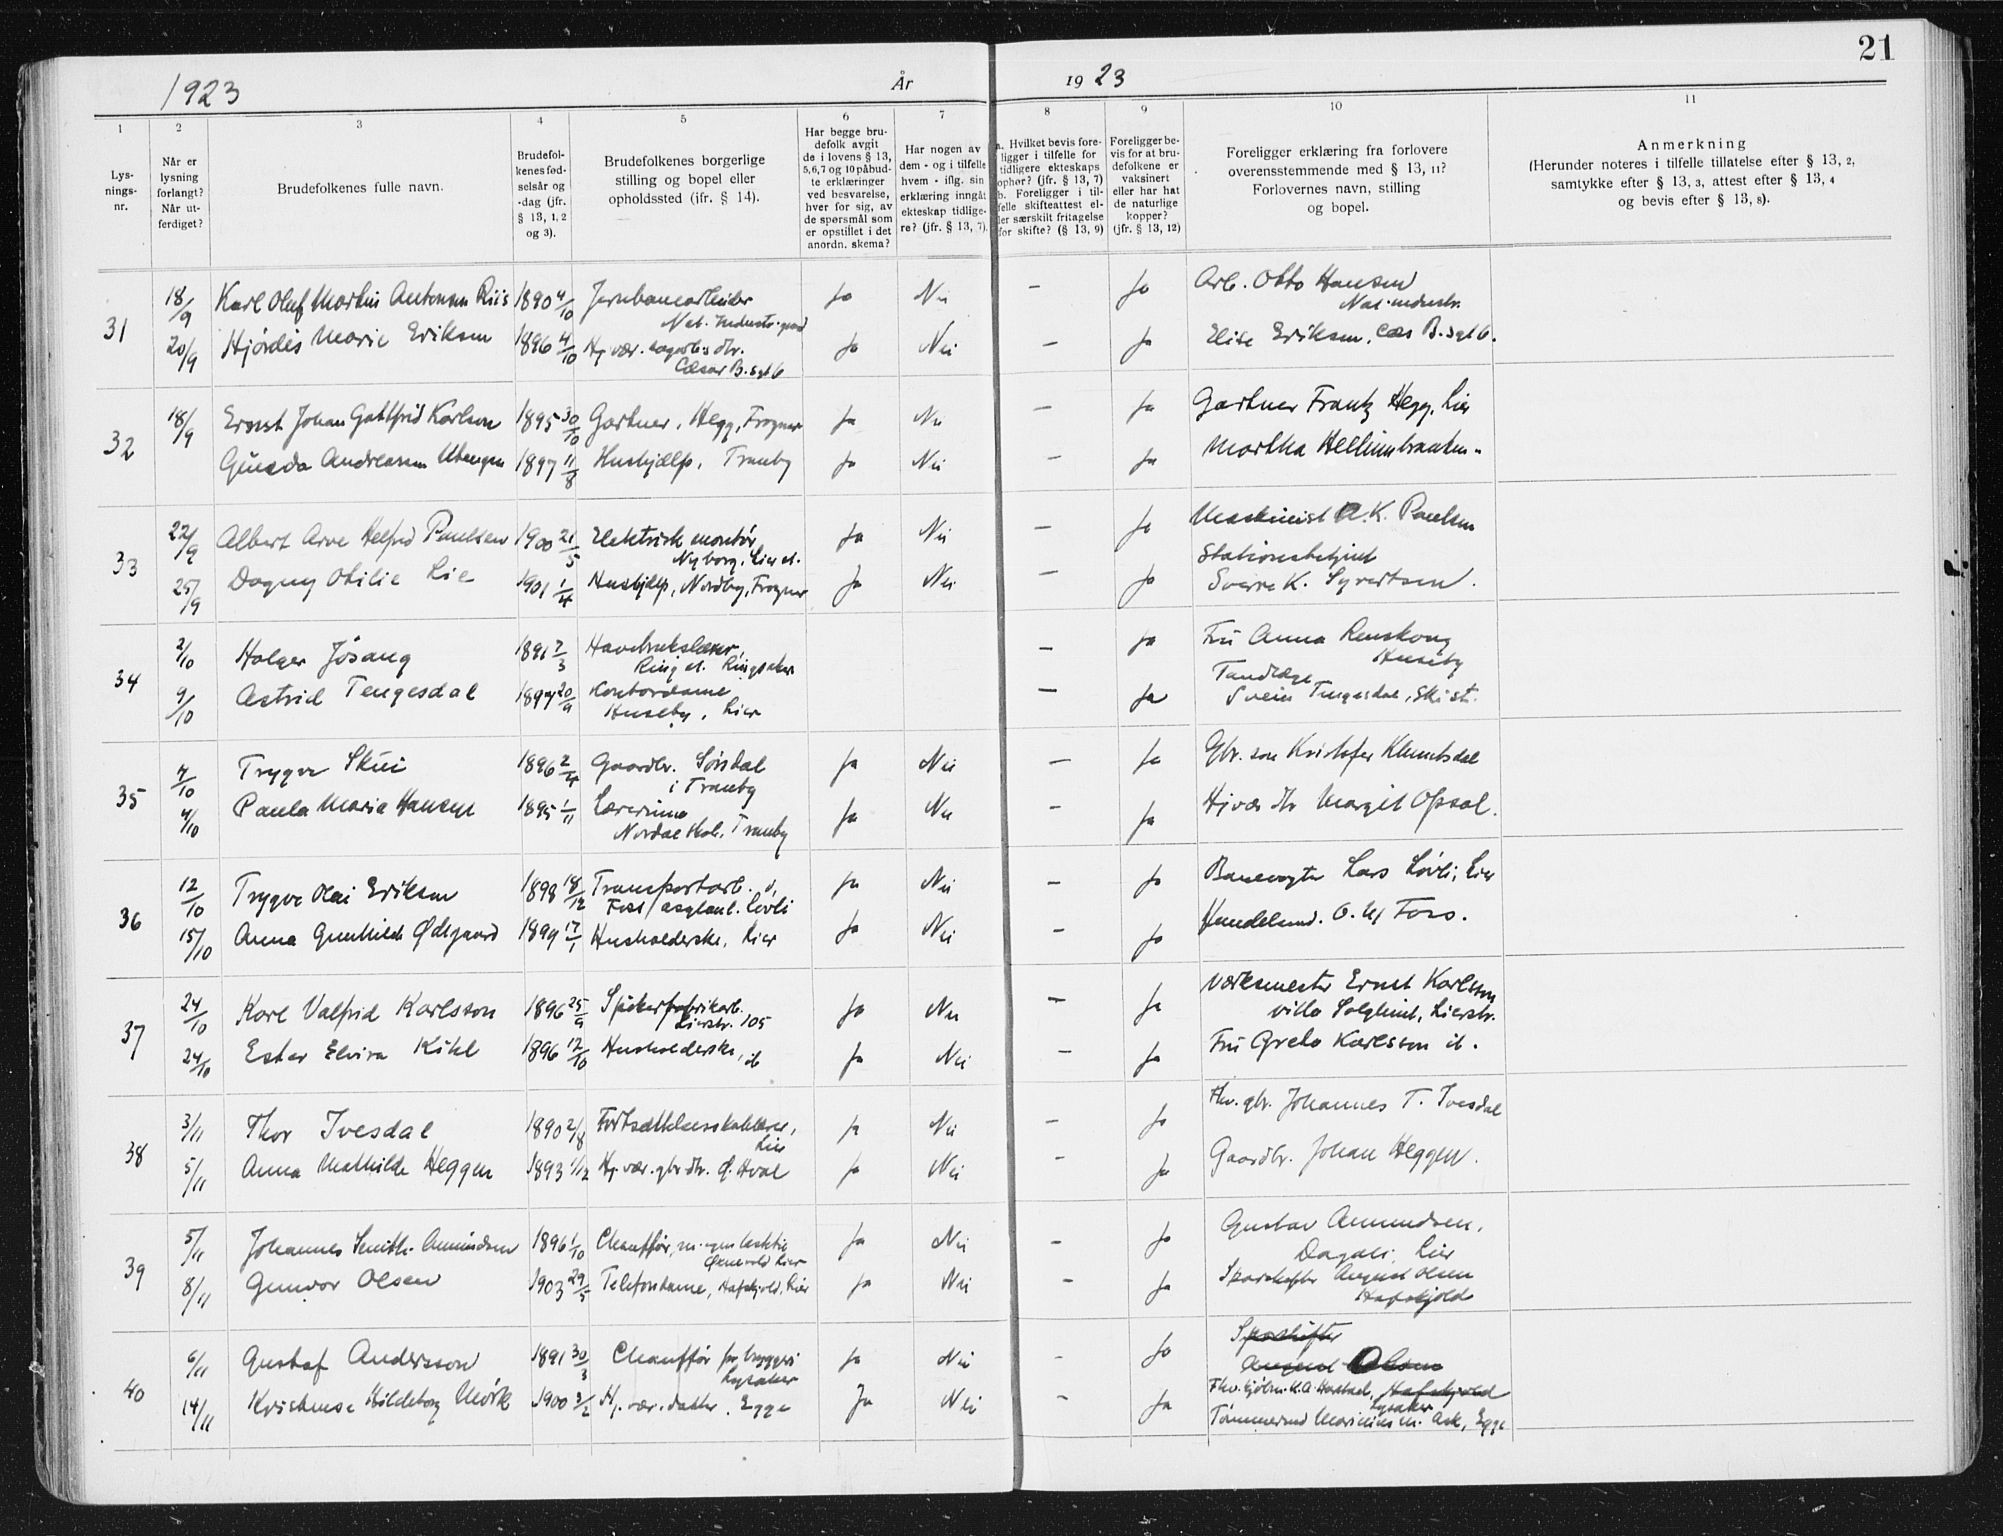 21
1923
År
1923
1
2
3
4
5
6
7
8
9
10
11
Lys-
nings-
nr.
Når er
lysning
forlangt?
Når ut-
ferdiget?
Brudefolkenes fulle navn.
Brudefol-
kenes fød-
selsår og
-dag (jfr.
§ 13, 1, 2
og 3).
Brudefolkenes borgerlige
stilling og bopel eller
opholdssted (jfr. § 14).
Har begge bru-
defolk avgit
de i lovens § 13,
5,6,7 og 10 påbud-
te erklæringer
ved besvarelse,
hver for sig, av
de spørsmål som
er opstillet i det
anordn. skema?
Har nogen av
dem - og i tilfelle
hvem - iflg. sin
erklæring inngåt
ekteskap tidlige-
re? (jfr. § 13, 7).
a. Hvilket bevis fore-
ligger i tilfelle for
tidligere ekteskaps
ophør? (jfr. § 13, 7)
b. Foreligger i til-
felle skifteattest el-
ler særskilt fritagelse
for skifte? (§ 13, 9)
Foreligger be-
vis for at bru-
defolkene er
vaksinert
eller har hat
de naturlige
kopper?
(jfr. § 13, 12)
Foreligger erklæring fra forlovere
overensstemmende med § 13, 11?
Forlovernes navn, stilling
og bopel.
Anmerkning
(Herunder noteres i tilfelle tillatelse efter § 13, 2,
samtykke efter § 13, 3, attest efter § 13, 4
og bevis efter § 13, 8).
31
18/9 Karl Oluf Martin Antonsen Riis 1890 4/10 Jernbanearbeider Ja Nei — Ja Arb. Otto Hansen
Nat. industr.
20/9 Hjørdis Marie Eriksen 1896 4/10 Hj. vær. dtr. Ja Nei — Ja Elise Eriksen, Cæs B. sgt 6.
Cæsar B. sgt 6
32
18/9 Ernst Johan Gottfrid Karlson 1895 30/10 Gartner, Hegg, Frogner Ja Nei — Ja Gartner Frantz Hegg, Lier
Andreasen 1897 11/8 Hushjælp, Tranby Ja Nei — Ja Martha
33
22/9 Albert Arve Helfred Paulsen 1900 21/5 Elektrisk montør Ja Nei — Ja Maskinist A. K. Paulsen
Nyborg, Lier st.
Stationsbetjent
25/9 Dagny Otilie Lie 1901 1/4 Hushjelp, Nordby, Frogner Ja Nei — Ja Sverre K. Syvertsen.
34
2/10 Holger Jösang 1891 7/3 — Ja Fru Anna Renskoug
Ring st. Ringsaker
Huseby
Tandlæge
9/10 Astrid Tengesdal 1897 20/9 Kontordame — Ja Svein Tengesdal, Ski st.
Huseby, Lier
35
4/10 Trygve Skui 1896 2/4 Gaardbr. Sørsdal Ja Nei — Ja Gbr. søn Kristofer
i Tranby
4/10 Paula Marie Hansen 1895 1/11 Lærerinne Ja Nei — Ja Hjvær dtr Margit Opsal.
Nordal skole, Tranby
36
12/10 Trygve Olai Eriksen 1898 18/12 Transportarb. Ja Nei — Ja Banevogter Lars Løvli, Lier
Løvli
15/10 Anna Gunhilde Ødegaard 1899 17/1 Husholderske, Lier Ja Nei — Ja Handelsmd. O. Foss.
37
24/10 Karl Valfrid Karlsson 1896 25/9 Spikerfabrikarb. Ja Nei — Ja Værksmester Ernst Karlsson
Lierstr. 105
villa Solglimt, Lierstr.
24/10 Ester Elvira Kihl 1896 12/10 Husholderske, it Ja Nei — Ja Fru Greta Karlsson it.
38
3/11 Thor Ivesdal 1890 2/8 Fortsættelsesskolelærer, Ja Nei — Ja Fhv. gbr. Johannes T. Ivesdal
Lier
5/11 Anna Mathilde Heggen 1893 1/12 Hj. vær. gbr. dtr. Ø. Hval Ja Nei — Ja Gaardbr. Johan Heggen.
39
5/11 Johannes Smith-Amundsen 1896 1/10 Chauffør, m. egen Ja Nei — Ja Gustav Amundsen,
Lier
Dagali, Lier
8/11 Gunvor Olsen 1903 29/5 Telefondame, Hafskjold, Lier Ja Nei — Ja Sporskifter August Olsen
Hafskjold
40
6/11 Gustaf Andersson 1891 30/3 Chauffør Ja Nei — Ja Sporskifter
Lysaker
August Olsen
Hafskjold
Lysaker
14/11 Hildeborg Mørk 1900 3/2 Hj. vær. datter. Egge Ja Nei — Ja Tømmermd Marinius M. Ask, Egge